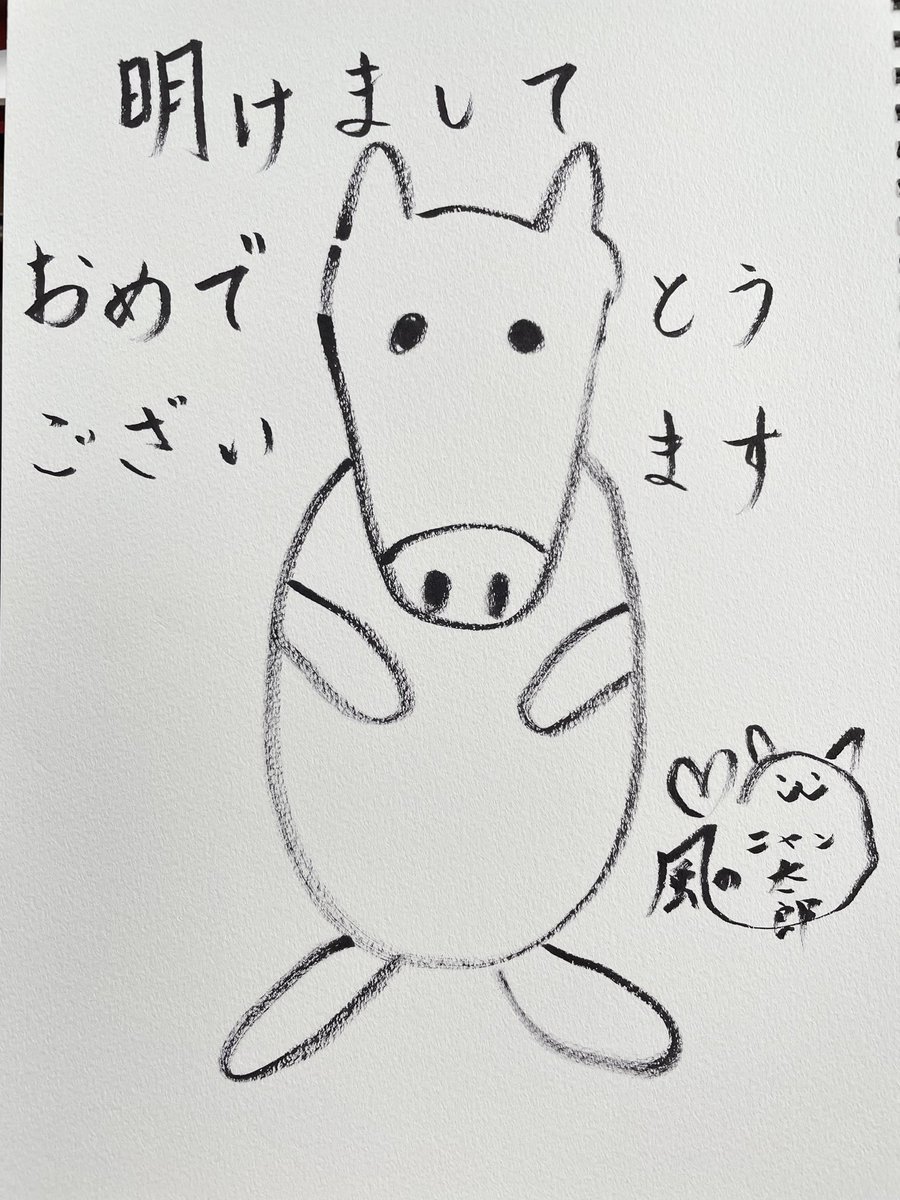 明けまして
おめでとう
ございます
風のニャン
太
郎